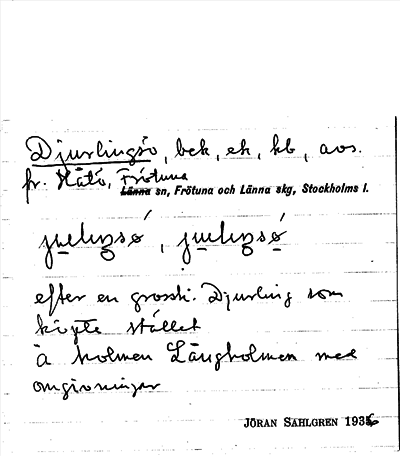 Djurlingsö, bek, ek, kb, avs.
fr. Håtö, Frötuna
Länna sn, Frötuna och Länna skg, Stockholms l.
efter en grossh. Djurling som
köpte stället
å holmen Långholmen med
omgivningar
JÖRAN SAHLGREN 1936